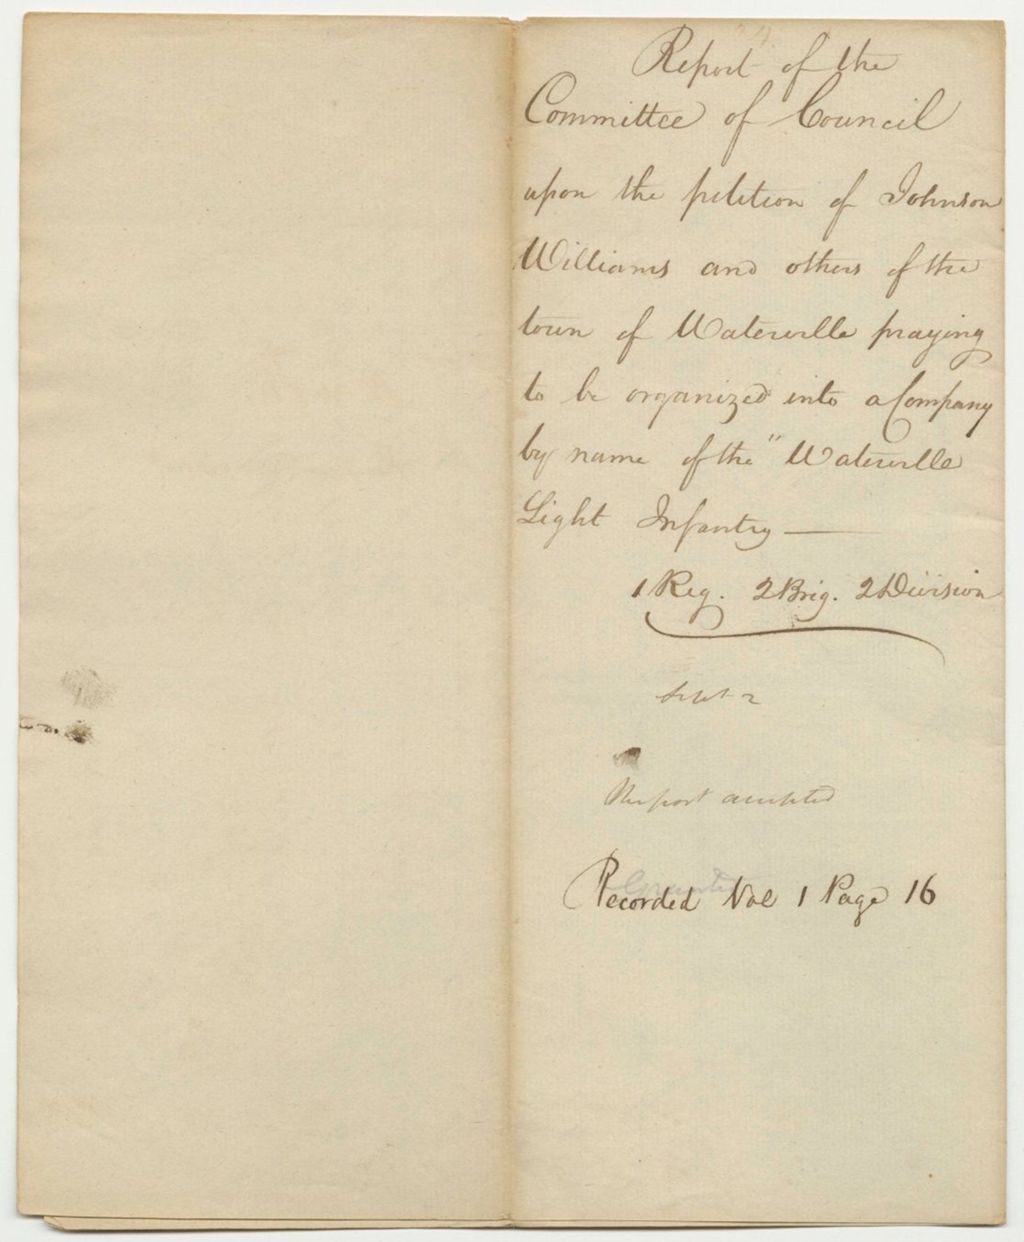 Report of the
Committee of Council
upon the petition of Johnson
Williams and others of the
town of Waterville praying
to be organized into a Company
by name of the "Waterville
Light Infantry —
1 Reg. 2 Brig. 2 Division
Sept 2
Report accepted
Granted
Recorded Vol 1 Page 16